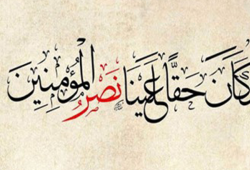 كَانَ حَقًّا عَلَيْنَا نَصْرُ الْمُؤْمِنِينَ